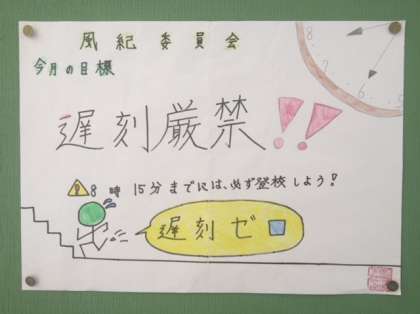 風紀委員会
今月の目様
遅刻厳禁!!
8時15分までには、必ず登校しよう!
遅刻ゼロ
8
7
6
5